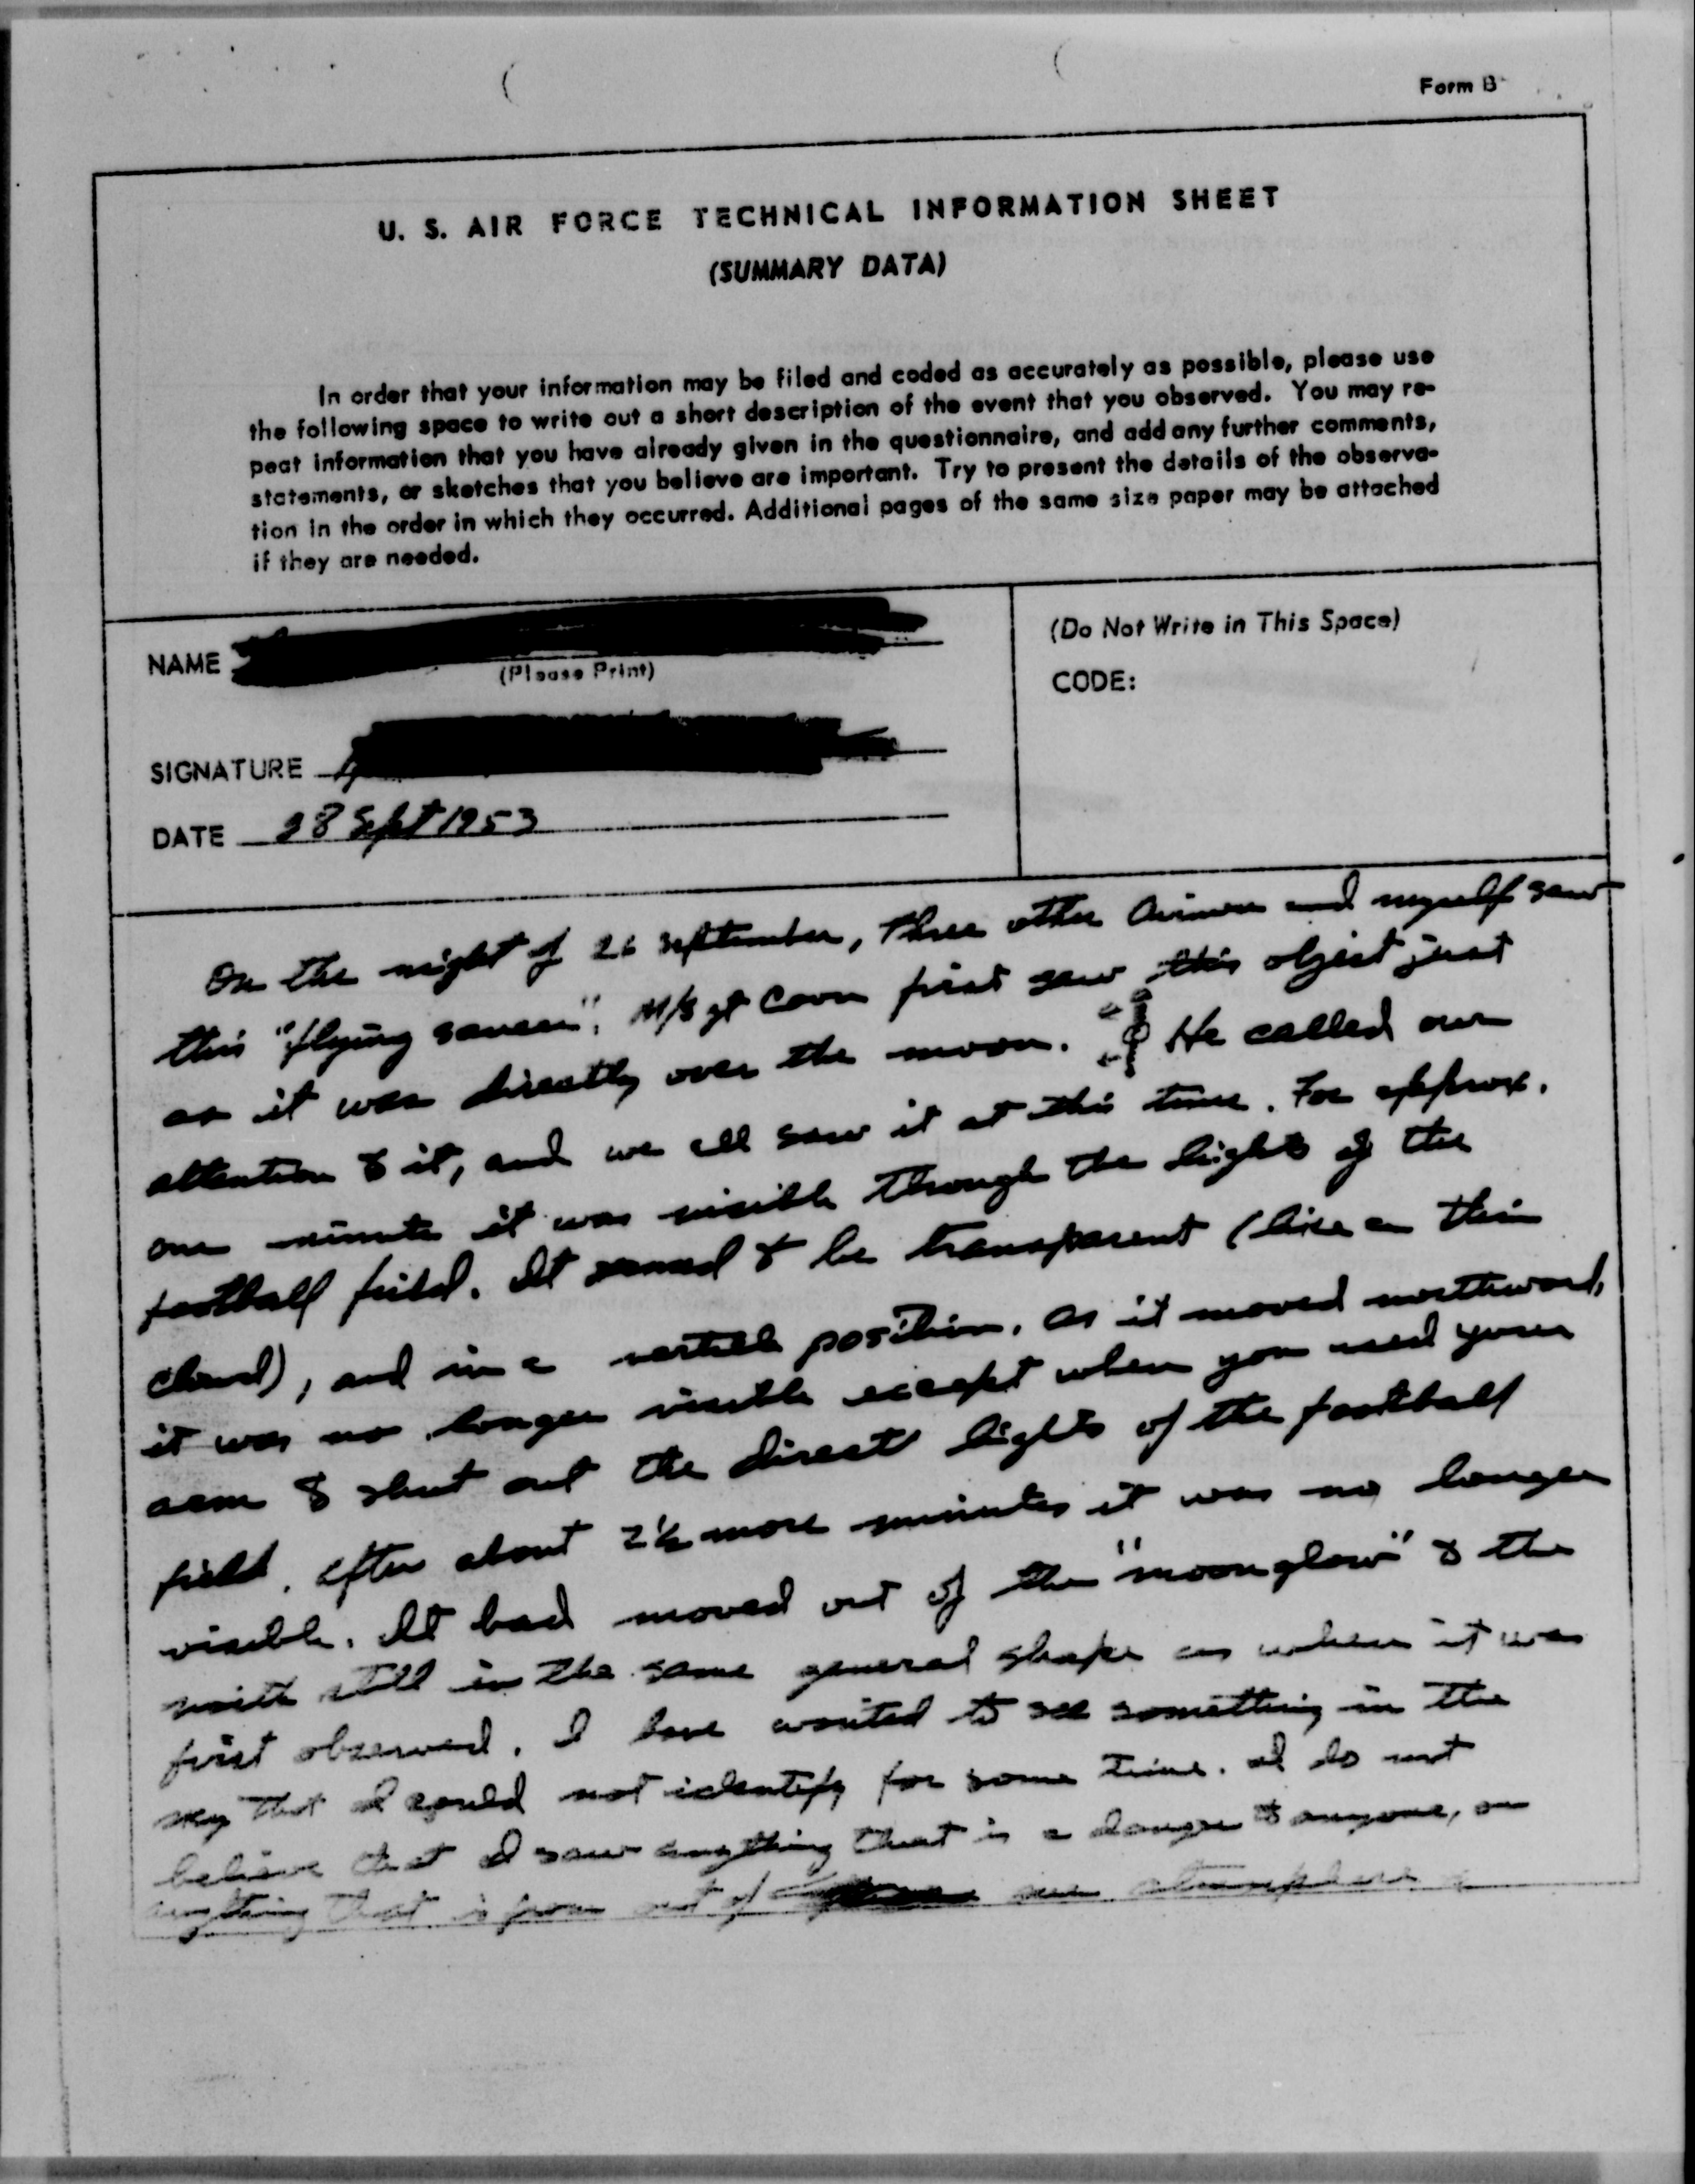 Form B
U. S. AIR FORCE TECHNICAL INFORMATION SHEET
(SUMMARY DATA)
In order that your information may be filed and coded as accurately as possible, please use
the following space to write out a short description of the event that you observed. You may re-
peat information that you have already given in the questionnaire, and add any further comments,
statements, or sketches that you believe are important. Try to present the details of the observa-
tion in the order in which they occurred. Additional pages of the same size paper may be attached
if they are needed.
NAME
(Please Print)
SIGNATURE
DATE 28 Sept 1953
(Do Not Write in This Space)
CODE:
On the night of 26 September, three other Airmen and myself saw
this "flying saucer". M/Sgt first saw this object just
as it was directly over the moon. He called our
attention to it, and we all saw it at this time. For approx.
one minute it was visible through the lights of the
football field. It seemed to be transparent (like a thin
cloud), and in a verticle position. As it moved northward,
it was no longer visible except when you used your
arm to shut out the direct lights of the football
field. After about 2½ more minutes it was no longer
visible. It had moved out of the "moonglow" to the
north still in the same general shape as when it was
first observed. I have wanted to see something in the
sky that I could not identify for some time. I do not
believe that I saw anything that is a danger to anyone, or
anything that is from out of our atmosphere